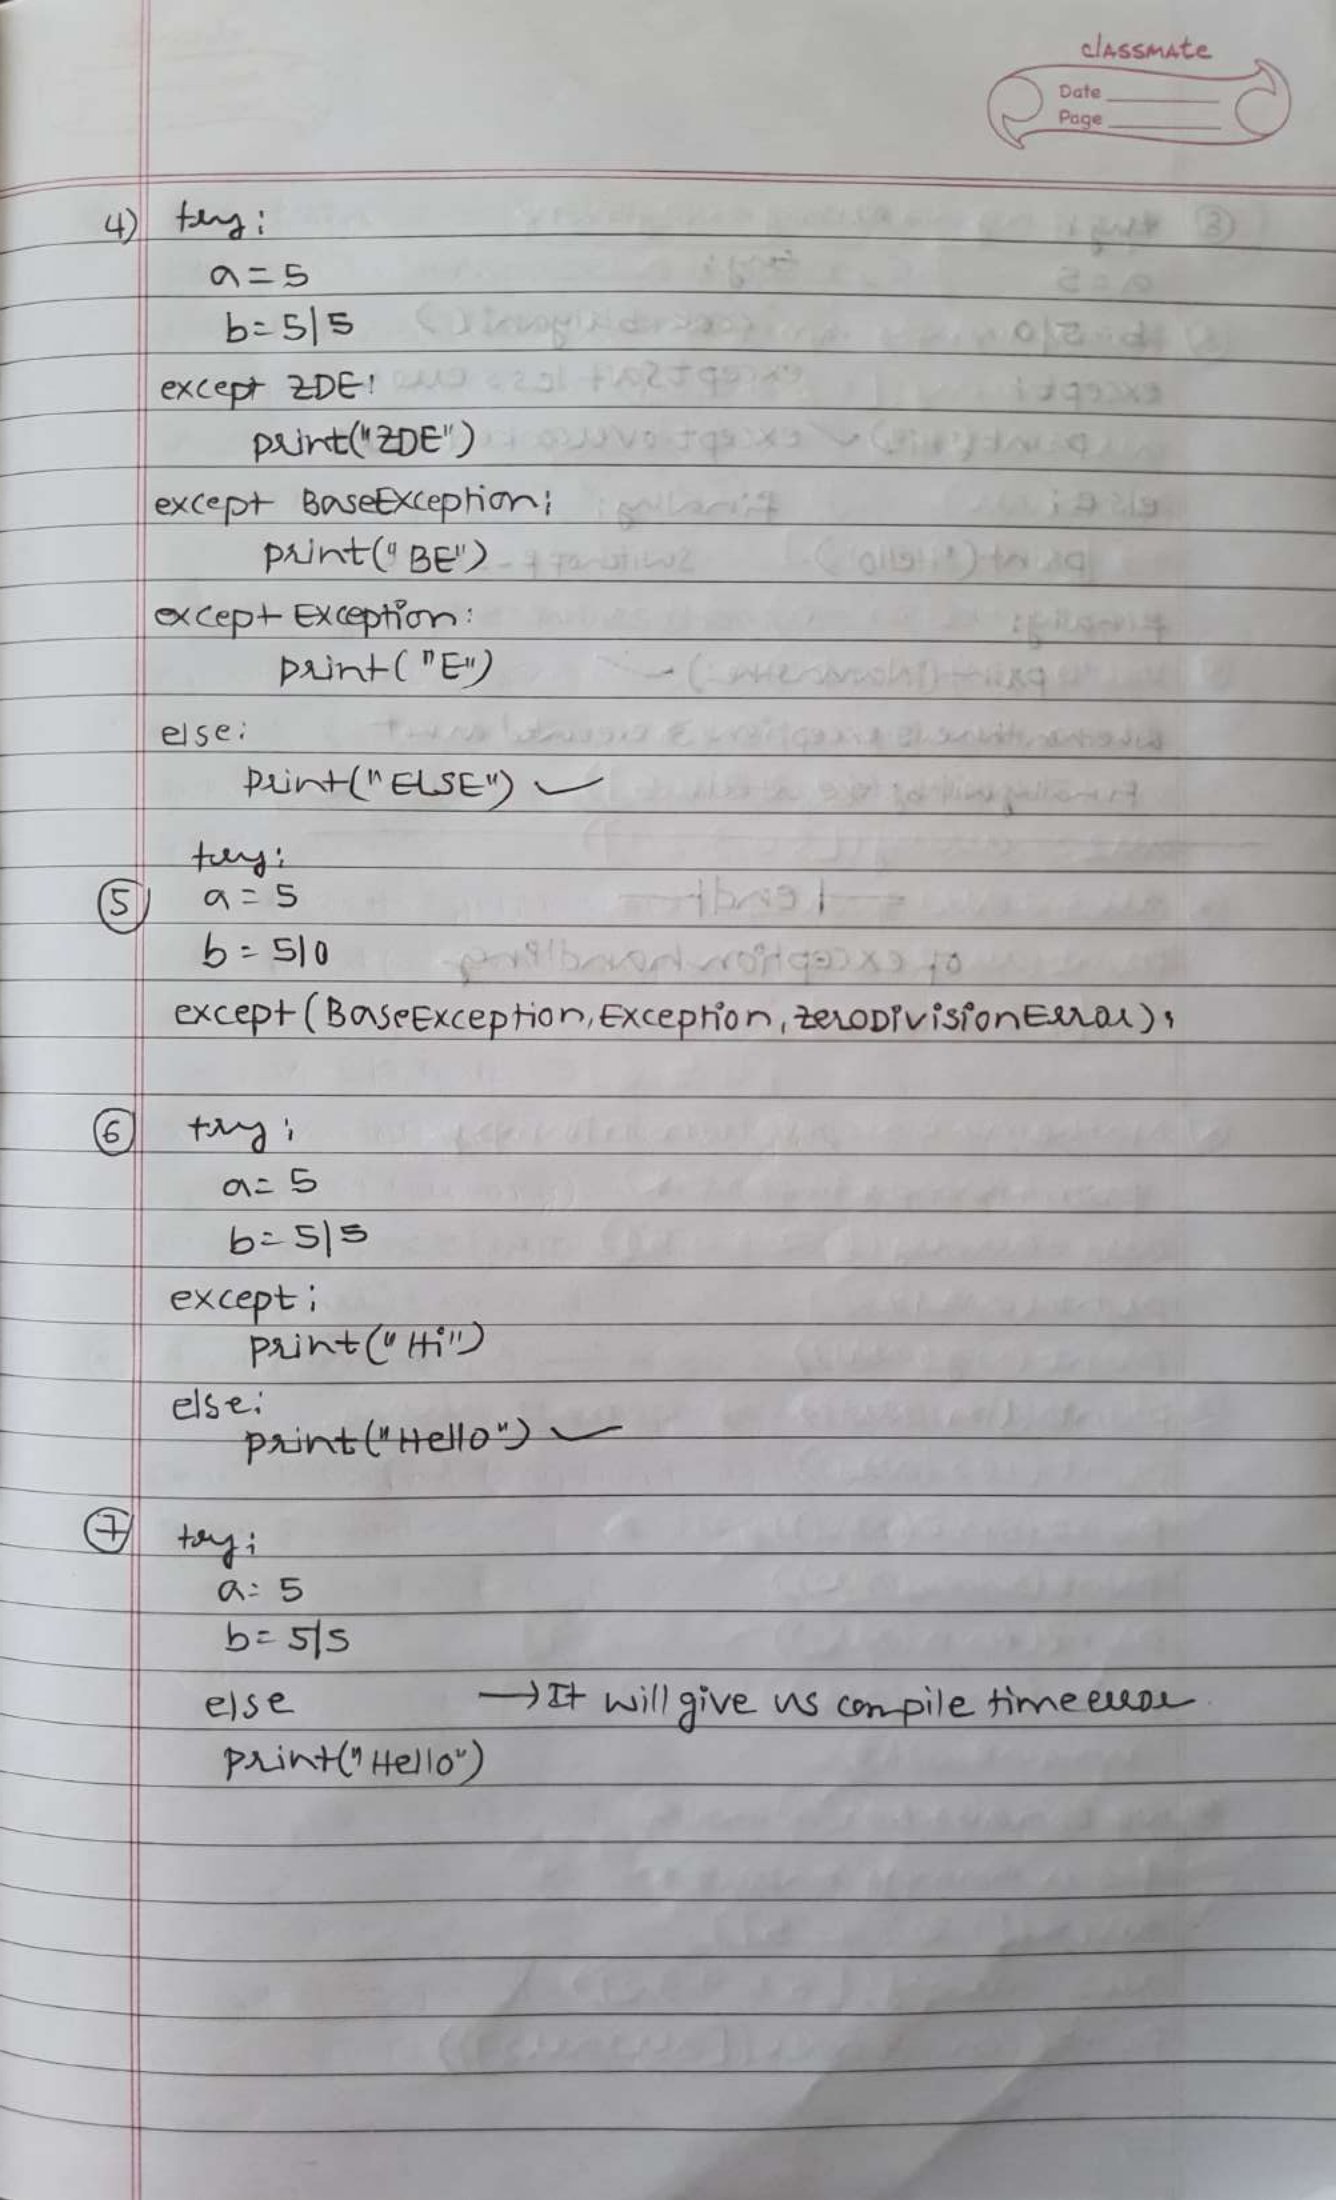 classmate
Date
Page
4) try:
a = 5
b = 5|5
except ZDE:
print("ZDE")
except BaseException:
print("BE")
except Exception:
print("E")
else:
print("ELSE") ✓
try:
⑤ a = 5
b = 5|0
except (BaseException, Exception, zeroDivisionError):
⑥ try:
a = 5
b = 5|5
except:
print("Hi")
else:
print("Hello") ✓
⑦ try:
a = 5
b = 5|5
else → It will give us compile time error.
print("Hello")